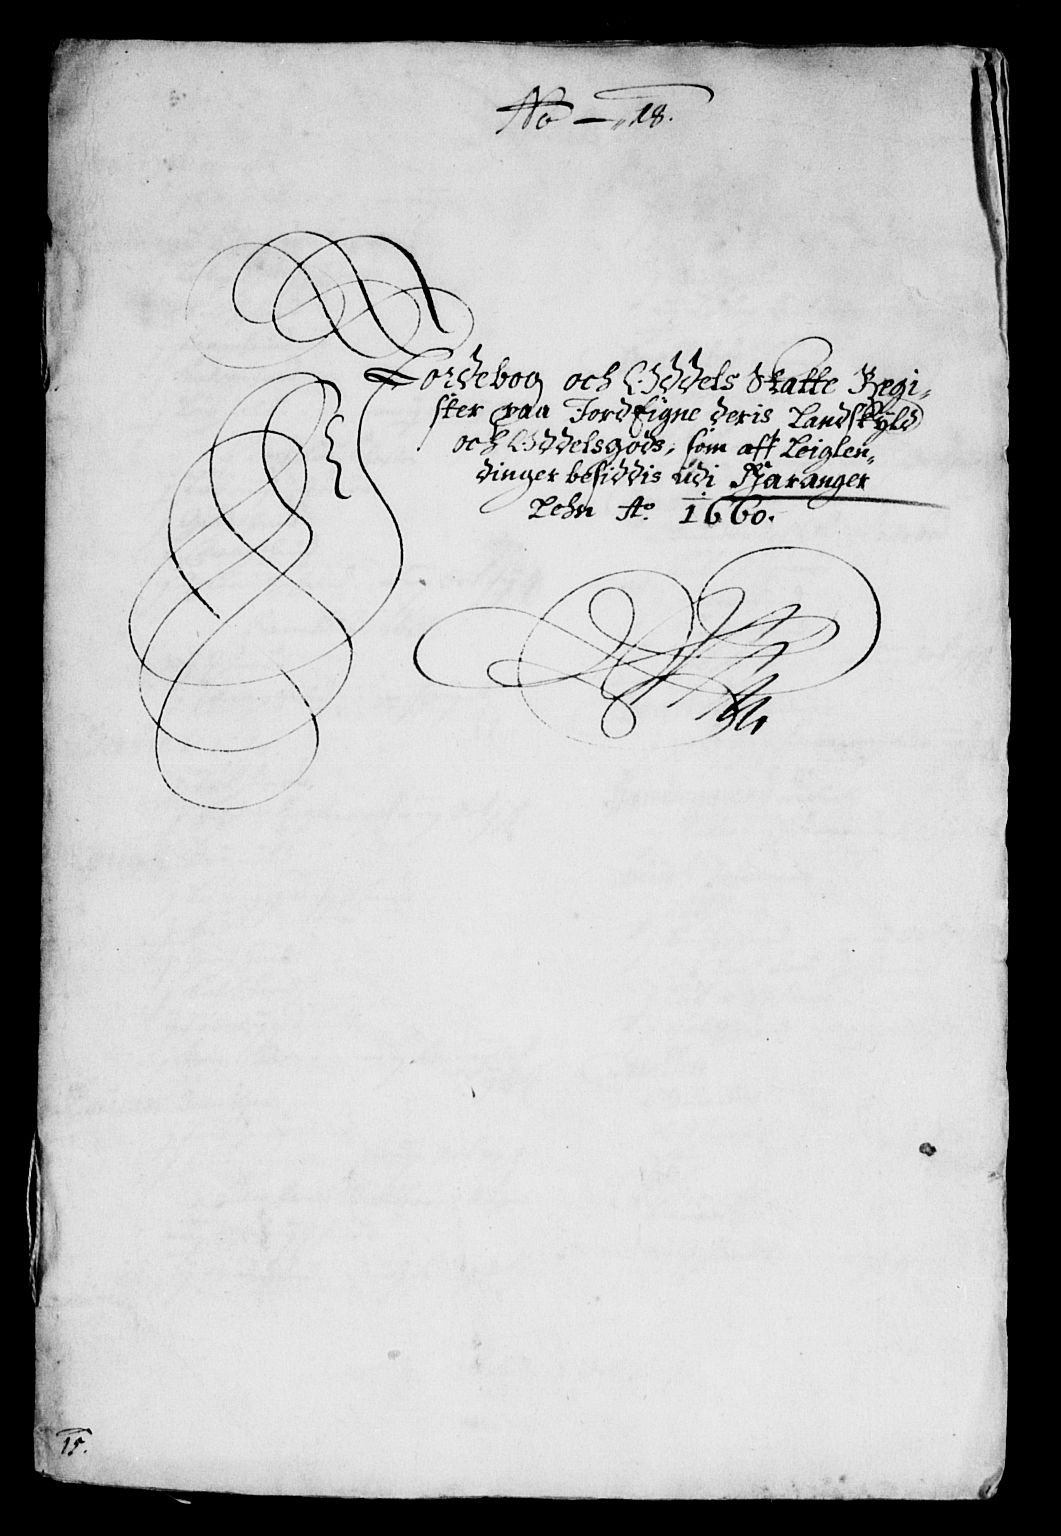 No — 18.
Jordebog och Oddels Skatte Regi-
ster paa Jordeigne deris Landskyld
och Oddelsgods, som aff Leiglen-
dinger besiddis udi Staranger
Lehn Ao. 1660.
15.